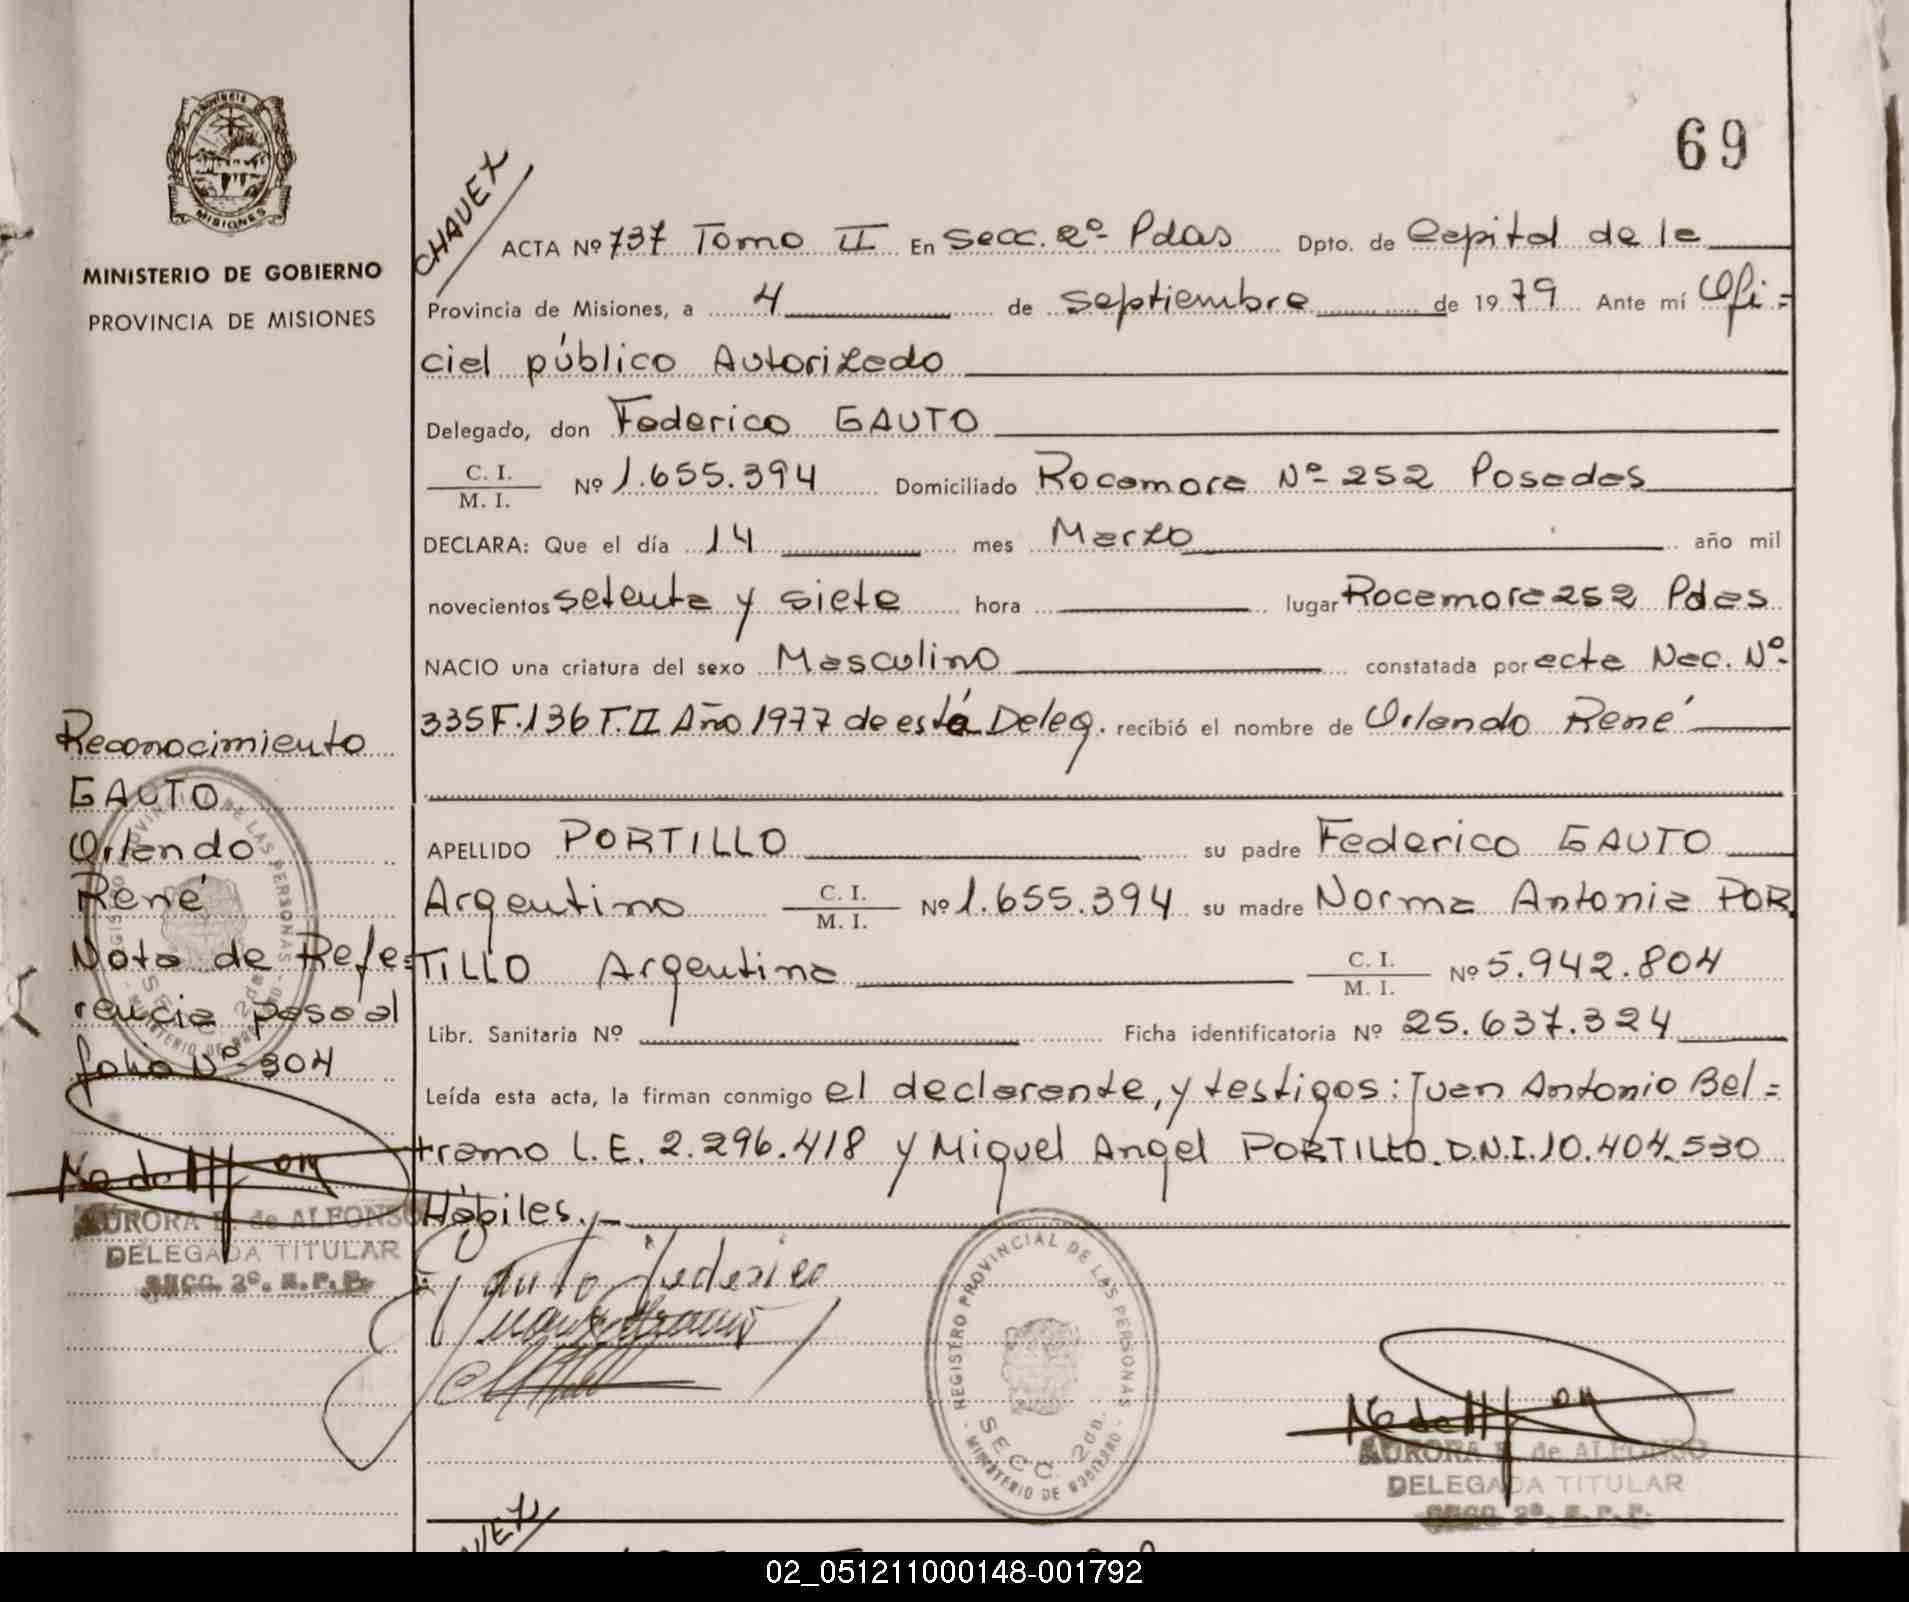 69
Provincia
MISIONES
MINISTERIO DE GOBIERNO
PROVINCIA DE MISIONES
CHAVEX
ACTA Nº 737 Tomo II En Secc. 2º Pdas Dpto. de Capital de la
Provincia de Misiones, a 4 de septiembre de 1979 Ante mí Ofi=
cial público Autorizado
Delegado, don Federico GAUTO
C. I.
M. I. Nº 1.655.394 Domiciliado Rocamora Nº 252 Posadas
DECLARA: Que el día 14 mes Marzo año mil
novecientos setenta y siete hora lugar Rocamora 252 Pdas
NACIO una criatura del sexo Masculino constatada por acta Nac. Nº
335 F. 136 T. II Año 1977 de está Deleg. recibió el nombre de Orlando René
APELLIDO PORTILLO su padre Federico GAUTO
Argentino C. I.
M. I. Nº 1.655.394 su madre Norma Antonia POR
TILLO Argentina C. I.
M. I. Nº 5.942.804
Libr. Sanitaria Nº Ficha identificatoria Nº 25.637.324
Leída esta acta, la firman conmigo el declarante, y testigos: Juan Antonio Bel=
tramo L.E. 2.296.418 y Miguel Angel PORTILLO. D.N.I. 10.404.530
Hábiles._
Gauto Federico
REGISTRO PROVINCIAL DE LAS PERSONAS
SECC. 2da.
MINISTERIO DE GOBIERNO
AURORA de ALFONSO
DELEGADA TITULAR
SECC. 2º. R. P. P.
Reconocimiento
GAUTO
Orlando
René
Nota de Refe=
rencia pasa al
folio Nº 304
REGISTRO PROVINCIAL DE LAS PERSONAS
SECC. 2da.
MINISTERIO DE GOBIERNO
AURORA de ALFONSO
DELEGADA TITULAR
SECC. 2º. R. P. P.
02_051211000148-001792